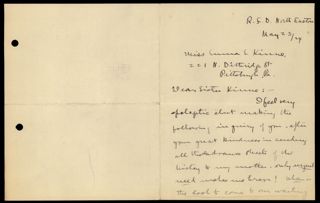 R. F. D. North Easton
May 23/29
Miss Emma L Kinne,
221 N. Dithridge St
Pittsburgh, Pa.
Dear Sister Kinne:-
I feel very
apologetic about making the
following inquiry of you, after
your great kindness in sending
all the advance sheets of the
History to my mother: only urgent
need makes me brave!
the book to come to our waiting